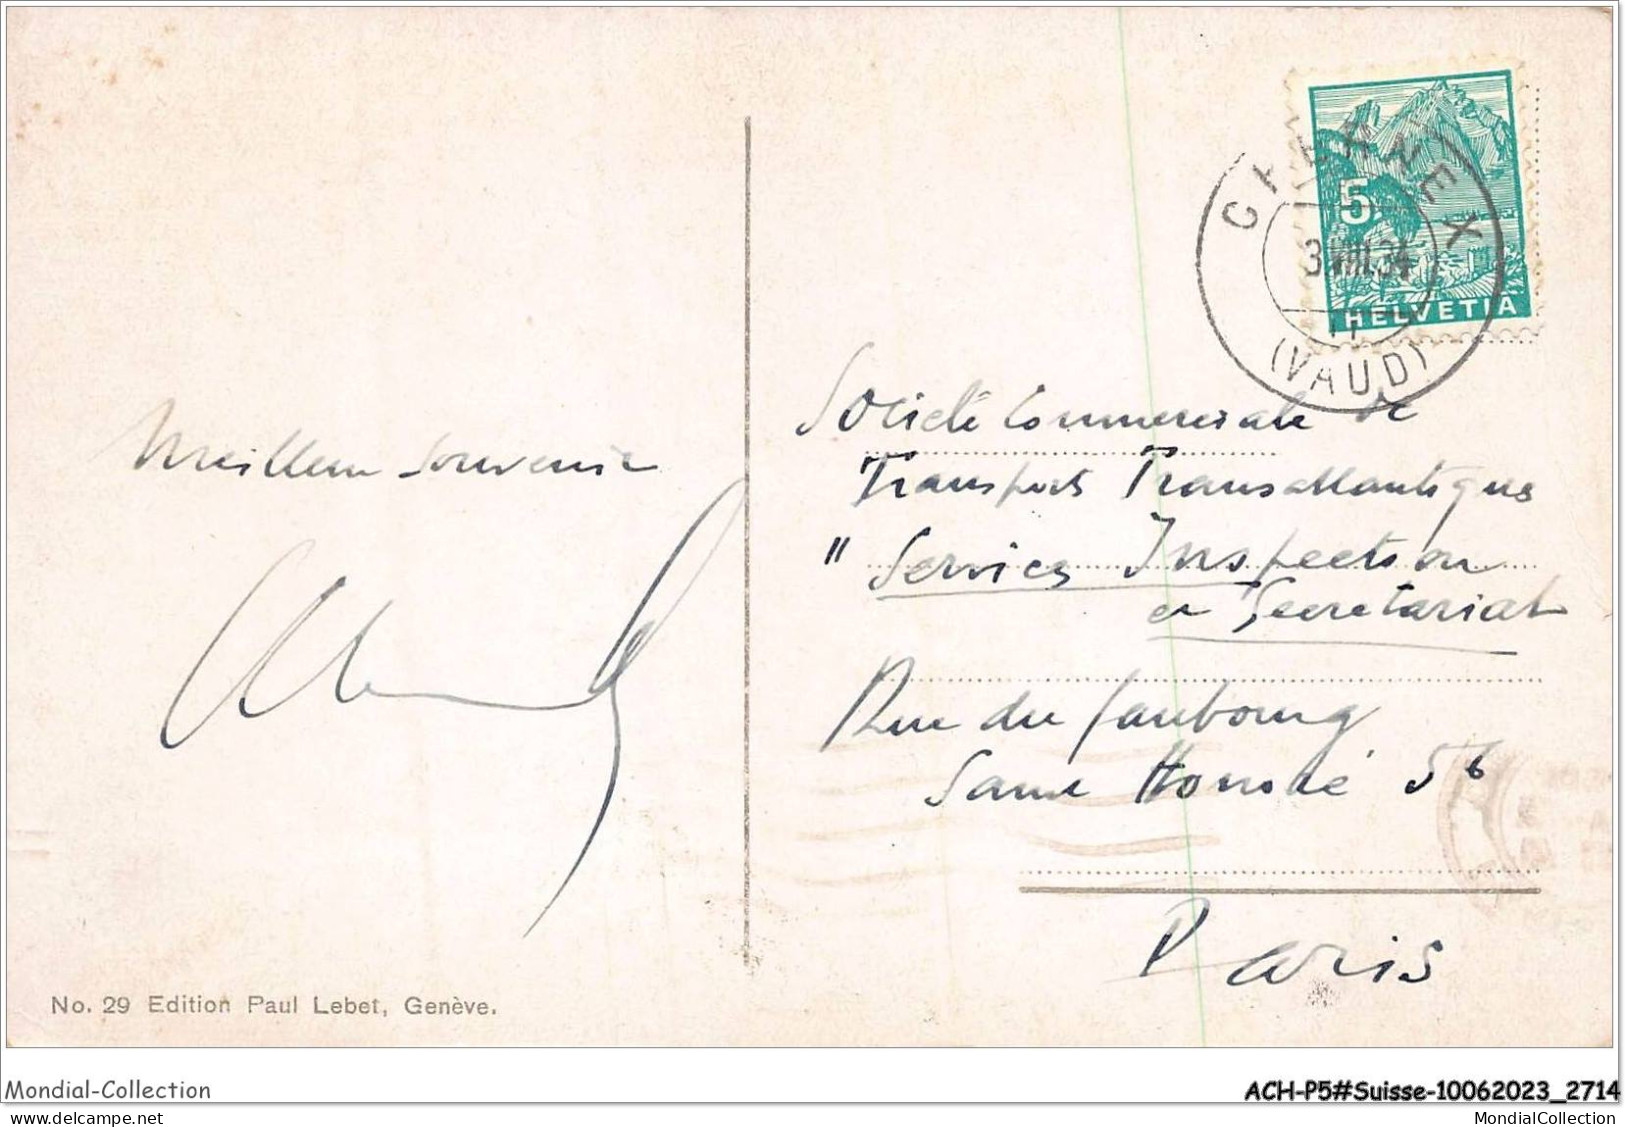 CHERNEX
5
3.VIII.34
HELVETIA
(VAUD)
Société Commerciale de
Transports Transatlantiques
" Services Inspection
et Secretariat
Rue du faubourg
Saint Honoré 56
Paris
Meilleur souvenir
No. 29 Edition Paul Lebet, Genève.
Mondial-Collection
ACH-P5#Suisse-10062023_2714
MondialCollection